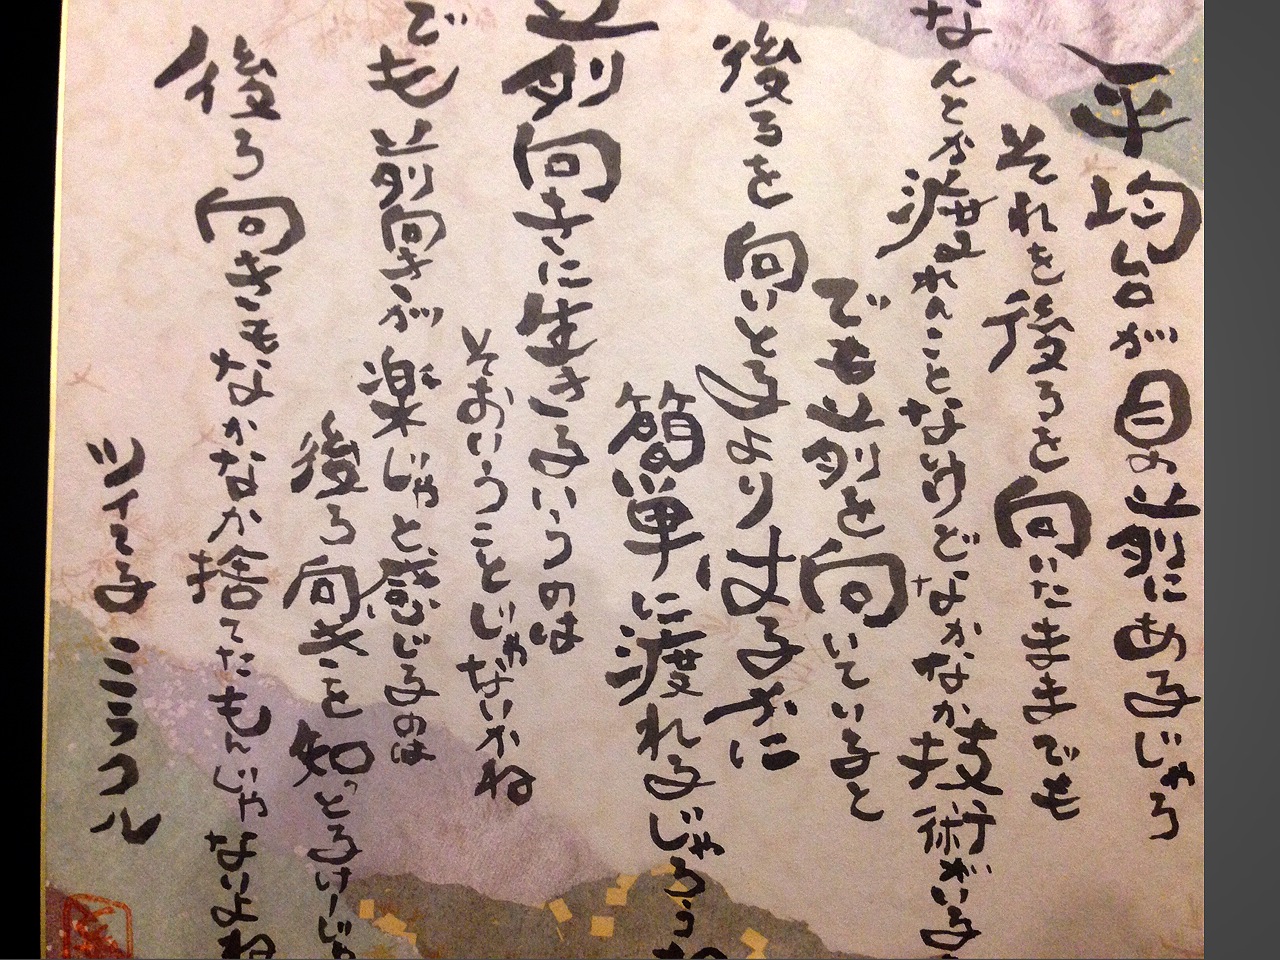 平均台が目の前にあるじゃろ
それを後ろを向いたままでも
なんとか渡れんことないけどなかなか技術がいる
でも前を向いていると
後ろを向いとるより
簡単に渡れるじゃろうね
前向きに生きるいうのは
そおいうことじゃないかね
でも前向きが楽じゃと感じるのは
後ろ向きを知っとるけーじゃ
後ろ向きもなかなか捨てたもんじゃないよね
ツイてる ミラクル